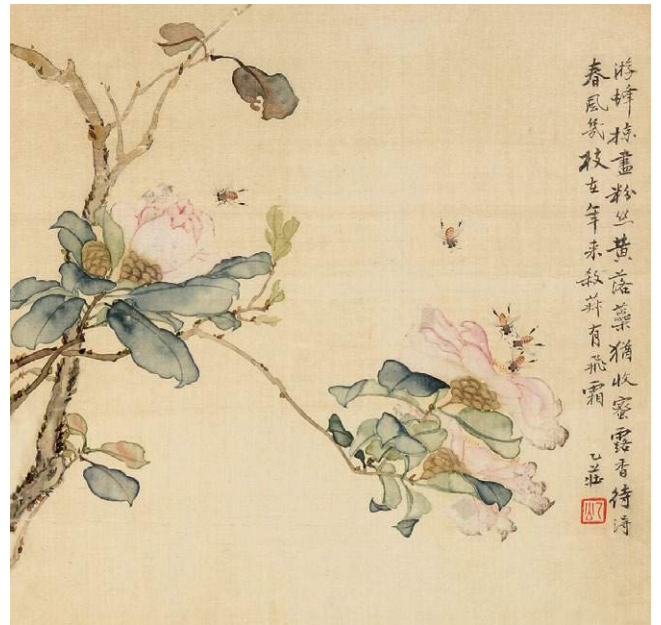 游蜂掠盡粉丝黄落蘂猶收蜜露香待得
春風幾枝在年来殺菽有飛霜
乙莊